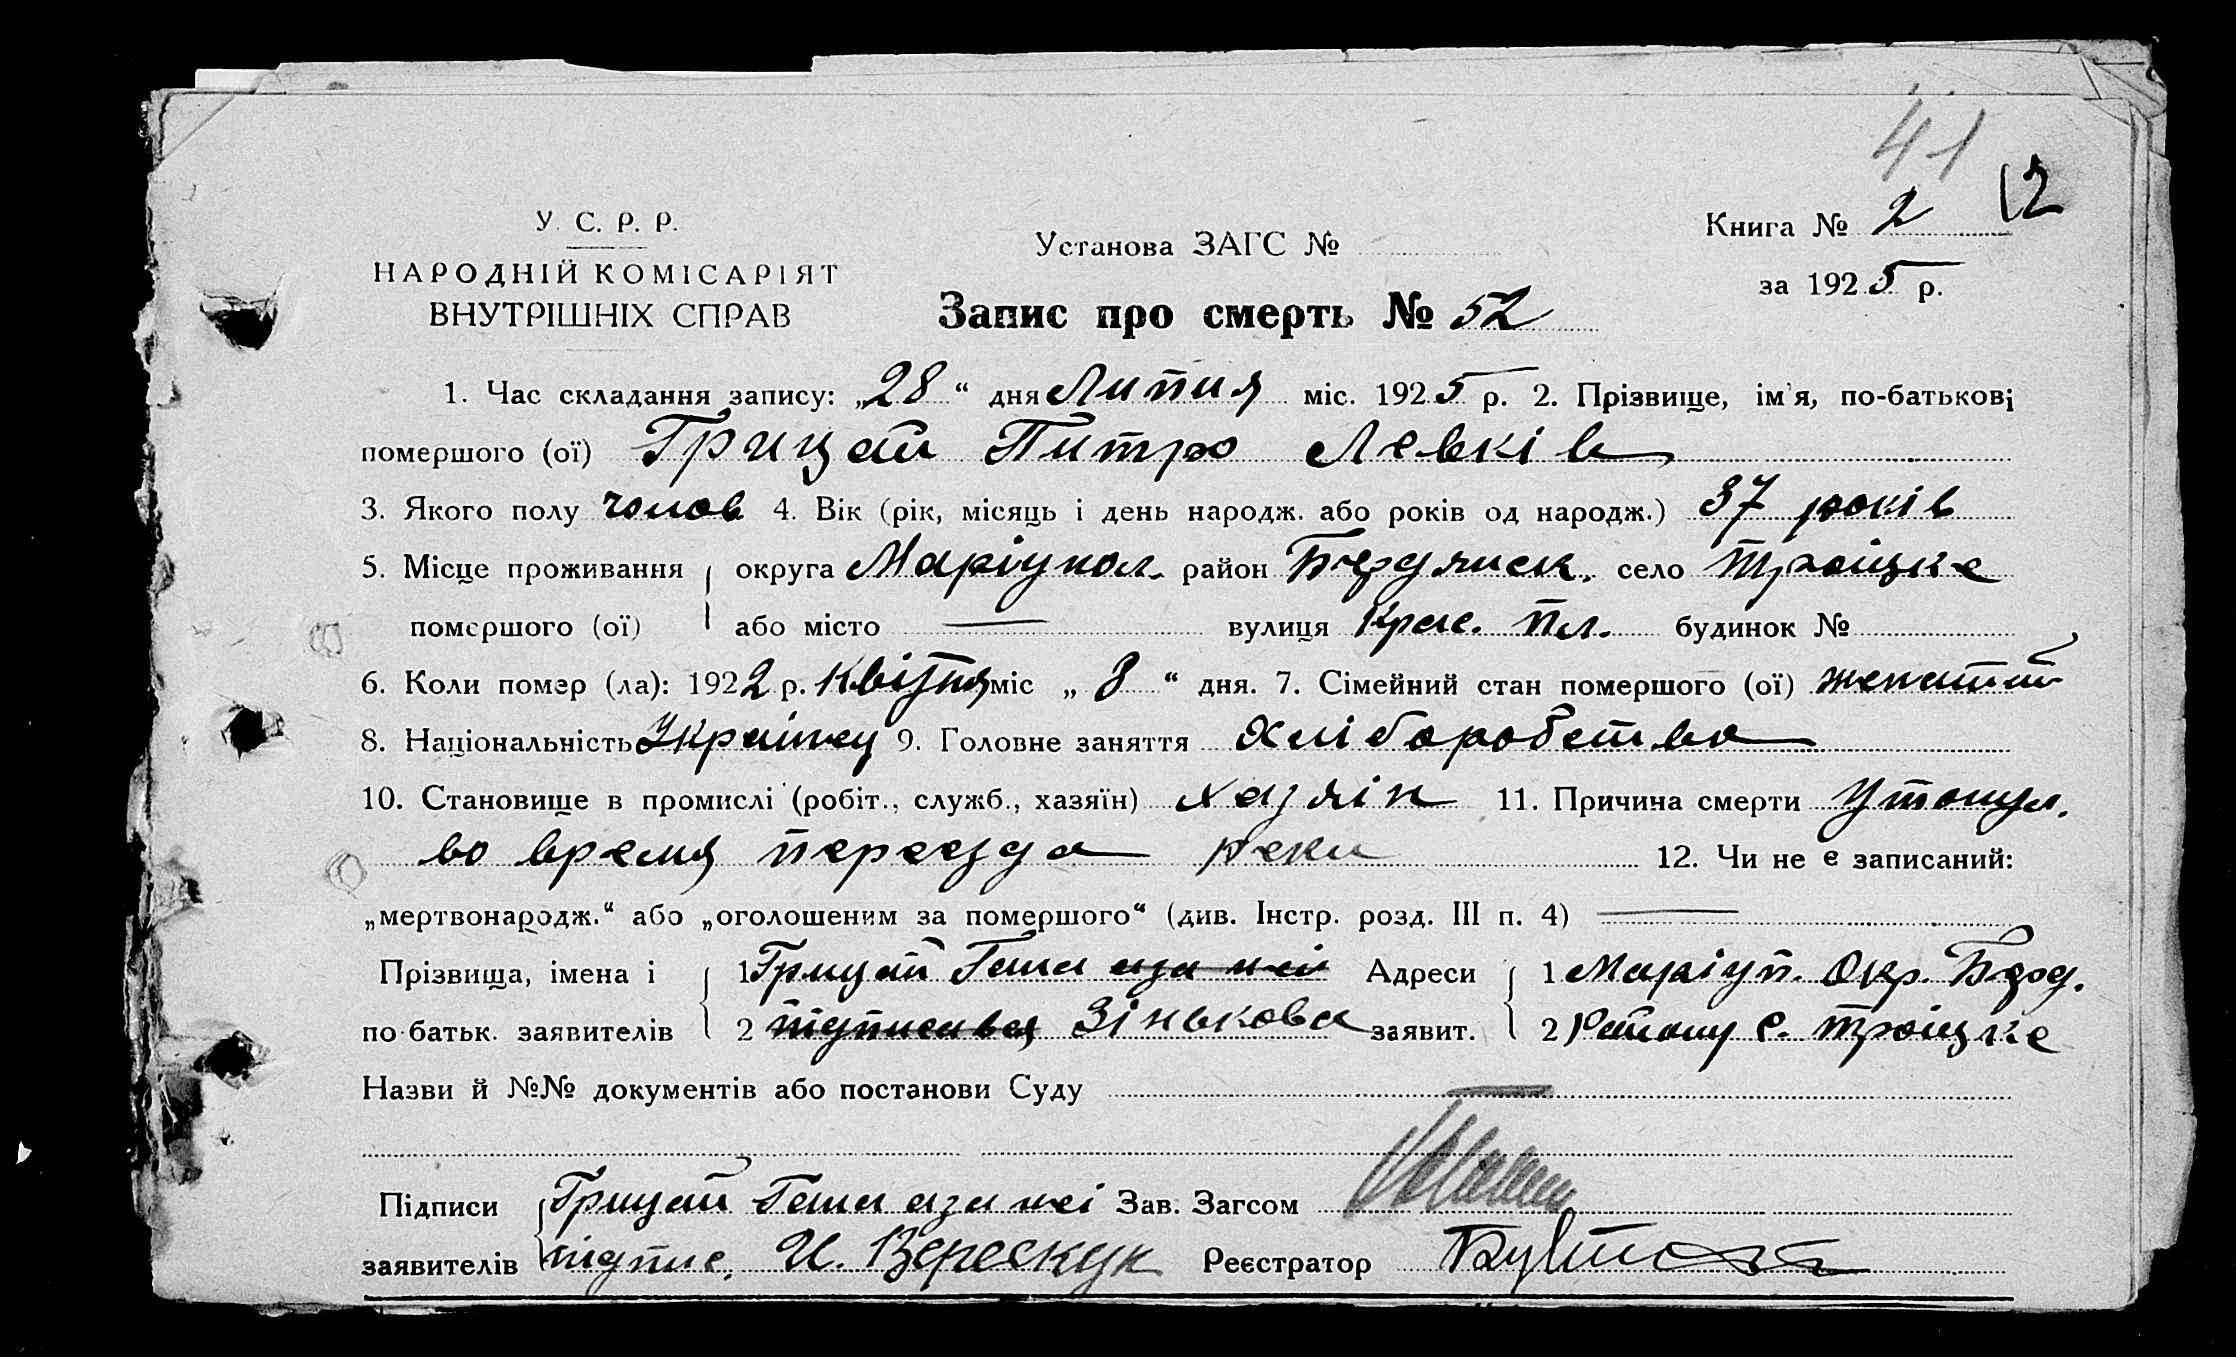 41
У. С. Р. Р.
НАРОДНІЙ КОМІСАРІЯТ
ВНУТРІШНІХ СПРАВ
Установа ЗАГС №
Книга № 2 12
за 1925 р.
Запис про смерть № 52
1. Час складання запису: „28“ дня Липня міс. 1925 р. 2. Прізвище, ім'я, по-батькові
помершого (ої) Грицай Питро Левків
3. Якого полу чолов 4. Вік (рік, місяць і день народж. або років од народж.) 37 років
5. Місце проживання округа Маріупол. район Бердянск. село Троіцке
помершого (ої) або місто — вулиця Крас. Пл. будинок №
6. Коли помер (ла): 1922 р. Квітня міс „ 3 “ дня. 7. Сімейний стан помершого (ої) женатий
8. Національність Украінец 9. Головне заняття Хліборобство
10. Становище в промислі (робіт., служб., хазяїн) хазяін 11. Причина смерти Утонул.
во время переезда реки 12. Чи не є записаний:
„мертвонародж.“ або „оголошеним за помершого“ (див. Інстр. розд. III п. 4) —
Прізвища, імена і 1 Грицай Гаша аза неі Адреси 1 Маріуп. Окр. Берд.
по-батьк. заявителів 2 підписався Зінькова заявит. 2 Району с. Троіцке
Назви й №№ документів або постанови Суду
Підписи Грицай Гаша аза неі Зав. Загсом
заявителів підпис. И. Верескун Реєстратор